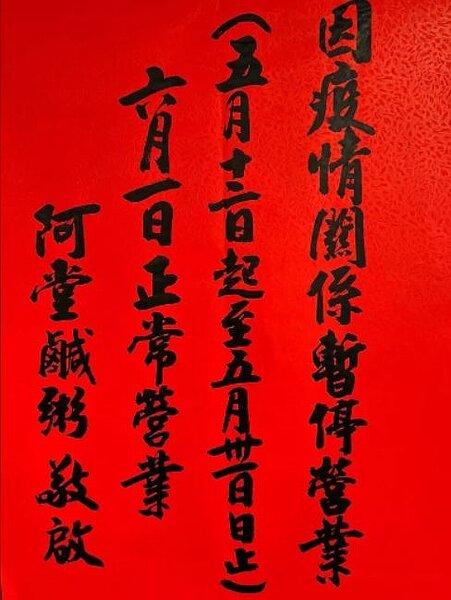 因疫情關係暫停營業
(五月十二日起至五月卅一日日止)
六月一日正常營業
阿堂鹹粥 敬啟